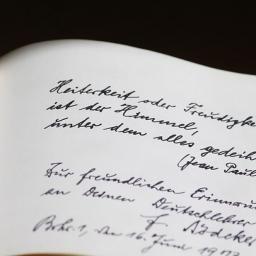 Heiterkeit oder Freudigke
ist der Himmel,
unter dem alles gedeih
(Jean Paul
Zur freundlichen Erinneru
an Deinen Deutschlehrer
den 16. Juni